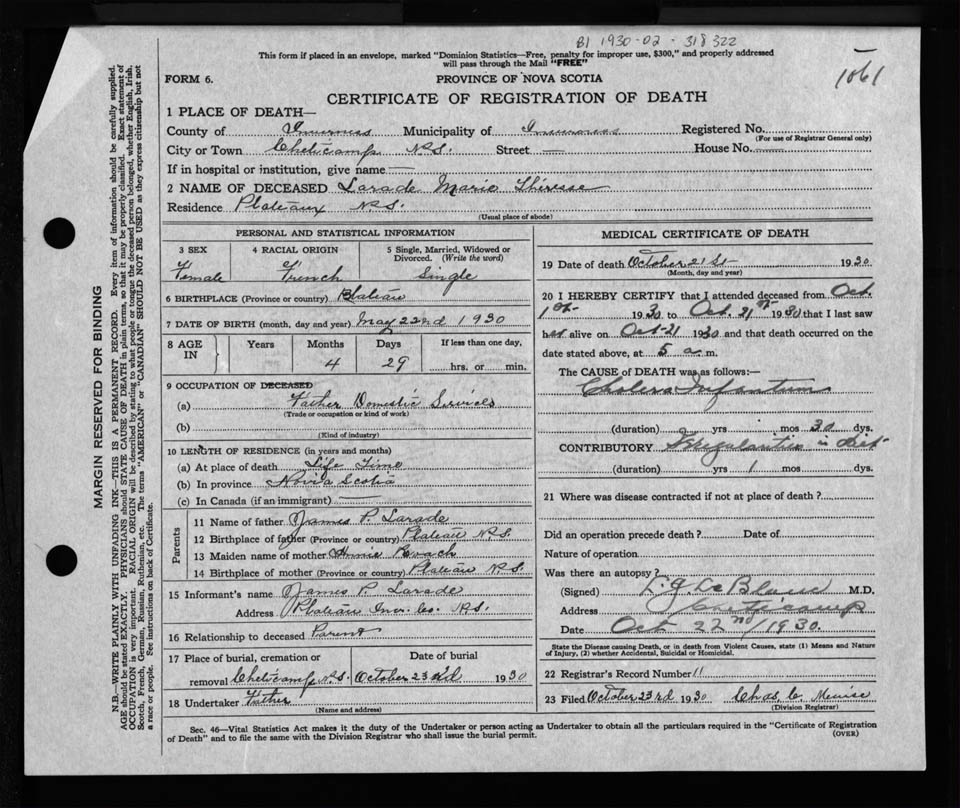 B1 1930-02-318322
1061
This form if placed in an envelope, marked "Dominion Statistics—Free, penalty for improper use, $300," and properly addressed
will pass through the Mail "FREE"
FORM 6.
PROVINCE OF NOVA SCOTIA
CERTIFICATE OF REGISTRATION OF DEATH
1 PLACE OF DEATH—
County of Inverness Municipality of Inverness Registered No.
(For use of Registrar General only)
City or Town Cheticamp N.S. Street — House No. —
If in hospital or institution, give name —
2 NAME OF DECEASED Larade Marie Thérèse
Residence Plateaux N.S.
(Usual place of abode)
PERSONAL AND STATISTICAL INFORMATION
3 SEX 4 RACIAL ORIGIN 5 Single, Married, Widowed or
Divorced. (Write the word)
Female French Single
6 BIRTHPLACE (Province or country) Plateau
7 DATE OF BIRTH (month, day and year) May 22nd 1930
8 AGE IN Years Months Days If less than one day,
4 29 hrs. or min.
9 OCCUPATION OF DECEASED
(a) Father Domestic Services
(Trade or occupation or kind of work)
(b)
(Kind of industry)
10 LENGTH OF RESIDENCE (in years and months)
(a) At place of death Life Time
(b) In province Nova Scotia
(c) In Canada (if an immigrant) —
Parents
11 Name of father James P. Larade
12 Birthplace of father (Province or country) Plateau N.S.
13 Maiden name of mother Annie Roach
14 Birthplace of mother (Province or country) Plateau N.S.
15 Informant's name James P. Larade
Address Plateau Inv. Co. N.S.
16 Relationship to deceased Parent
17 Place of burial, cremation or Date of burial
removal Cheticamp N.S. October 23rd 1930
18 Undertaker Father
(Name and address)
MEDICAL CERTIFICATE OF DEATH
19 Date of death October 21st 1930
(Month, day and year)
20 I HEREBY CERTIFY that I attended deceased from Oct.
1st 1930 to Oct. 21st 1930 that I last saw
her alive on Oct-21 1930 and that death occurred on the
date stated above, at 5 a.m.
The CAUSE of DEATH was as follows:—
Cholera Infantum
(duration) yrs mos 30 dys.
CONTRIBUTORY Irregularities in Diet
(duration) yrs 1 mos dys.
21 Where was disease contracted if not at place of death?
Did an operation precede death? Date of
Nature of operation
Was there an autopsy?
(Signed) L. J. De Blois M.D.
Address Cheticamp
Date Oct 22nd/1930.
State the Disease causing Death, or in death from Violent Causes, state (1) Means and Nature
of Injury, (2) whether Accidental, Suicidal or Homicidal.
22 Registrar's Record Number 11
23 Filed October 23rd 1930 Chas. C. Meuise
(Division Registrar)
Sec. 46—Vital Statistics Act makes it the duty of the Undertaker or person acting as Undertaker to obtain all the particulars required in the "Certificate of Registration
of Death" and to file the same with the Division Registrar who shall issue the burial permit.
(OVER)
MARGIN RESERVED FOR BINDING
N.B.—WRITE PLAINLY WITH UNFADING INK—THIS IS A PERMANENT RECORD. Every item of information should be carefully supplied.
AGE should be stated EXACTLY. PHYSICIANS should STATE CAUSE OF DEATH in plain terms, so that it may be properly classified. Exact statement of
OCCUPATION is very important. RACIAL ORIGIN will be described by stating to what people or tongue the deceased person belonged, whether English, Irish,
Scotch, French, German, Russian, Ruthenian, etc. The terms "AMERICAN" or "CANADIAN" SHOULD NOT BE USED as they express citizenship but not
a race or people. See instructions on back of Certificate.